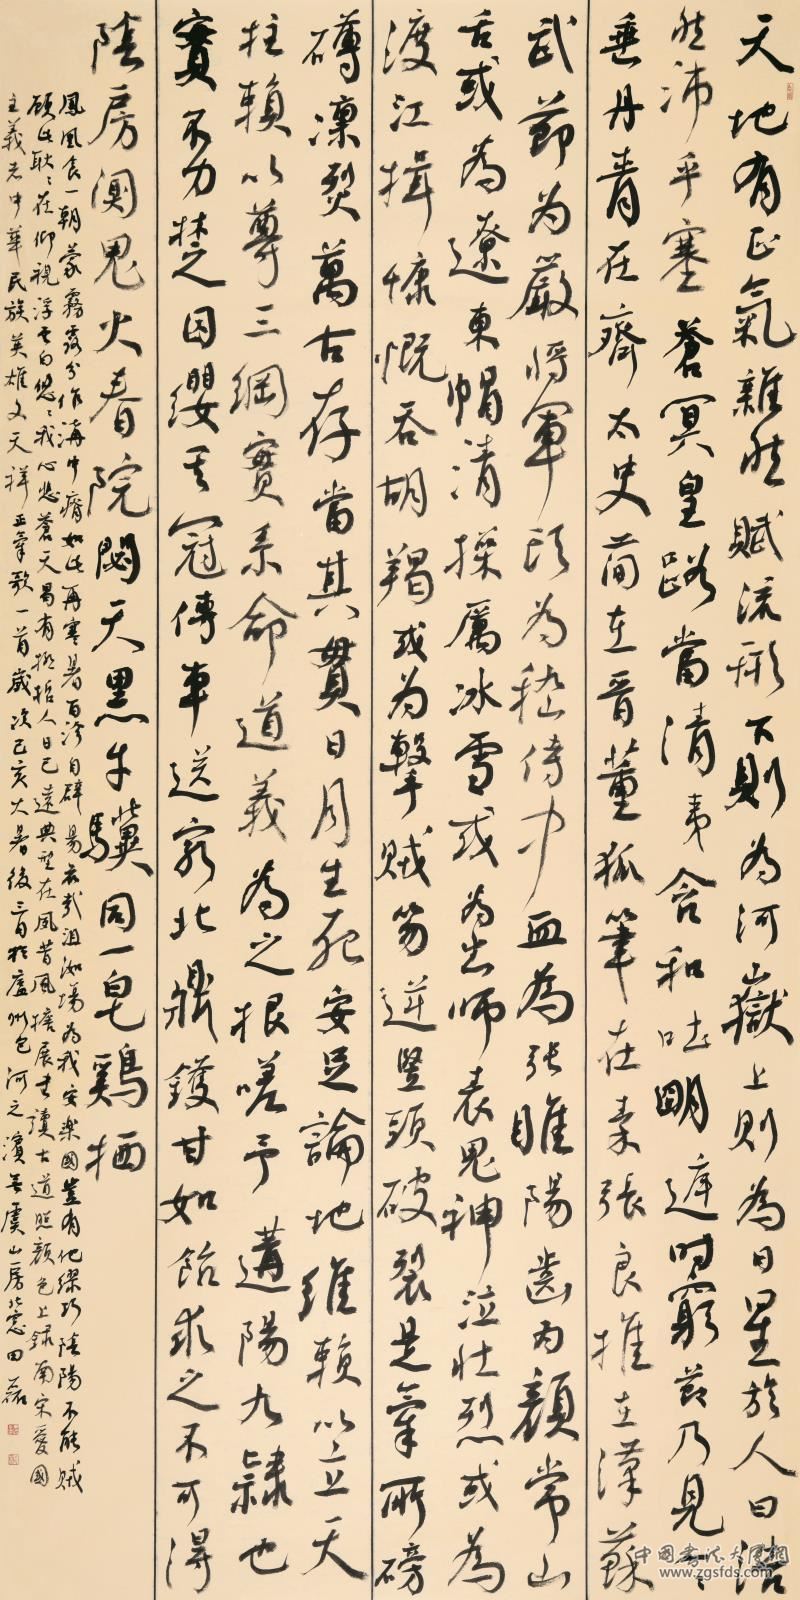 天地有正氣雜然賦流形下則為河嶽上則為日星於人曰浩
然沛乎塞蒼冥皇路當清夷含和吐明庭時窮節乃見一一
垂丹青在齊太史簡在晉董狐筆在秦張良椎在漢蘇
武節为嚴將軍頭为嵇侍中血為張睢陽齒为顏常山
舌或為遼東帽清操厲冰雪或為出師表鬼神泣壯烈或為
渡江楫慷慨吞胡羯或为擊賊笏逆豎頭破裂是氣所磅
礴凜烈萬古存當其貫日月生死安足論地維賴以立天
柱賴以尊三綱實系命道義為之根嗟予遘陽九隸也
實不力楚囚纓其冠傳車送窮北鼎鑊甘如飴求之不可得
陰房闃鬼火春院閟天黑牛驥同一皂鷄栖
鳳凰食一朝蒙霧露分作溝中瘠如此再寒暑百沴自辟易哀哉沮洳場為我安樂國豈有他繆巧陰陽不能賊
顧此耿〻在仰視浮雲白悠〻我心悲蒼天曷有極哲人日已遠典型在夙昔風簷展書讀古道照顏色上録南宋愛國
主義者中華民族英雄文天祥正氣歌一首歲次己亥大暑後三日於廬州包河之濱無虞山房北窓田磊
中国书法大厦网
www.zgsfds.com